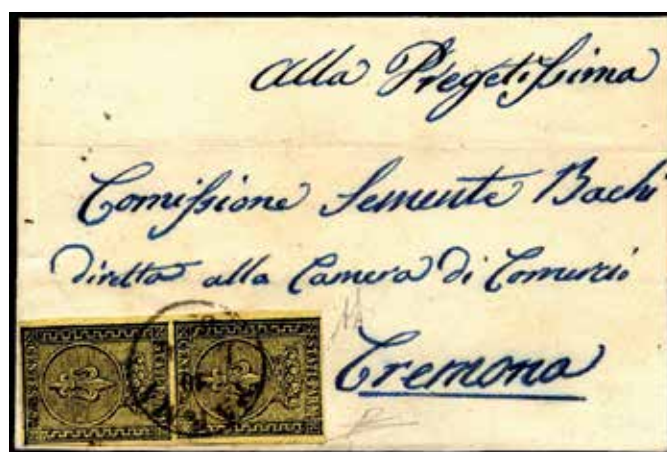 Alla Pregetissima
Comissione Semente Bachi
diretta alla Camera di Comercio
Cremona